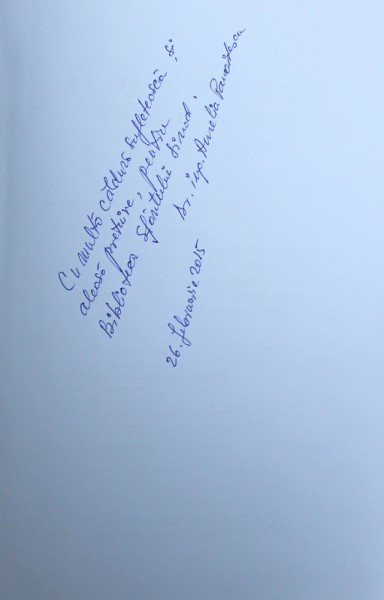 Cu multă căldură sufletească, și
aleasă prețuire, pentru
Biblioteca Sfântului Sinod!
Dr. ing. Amelia
26. februarie 2015